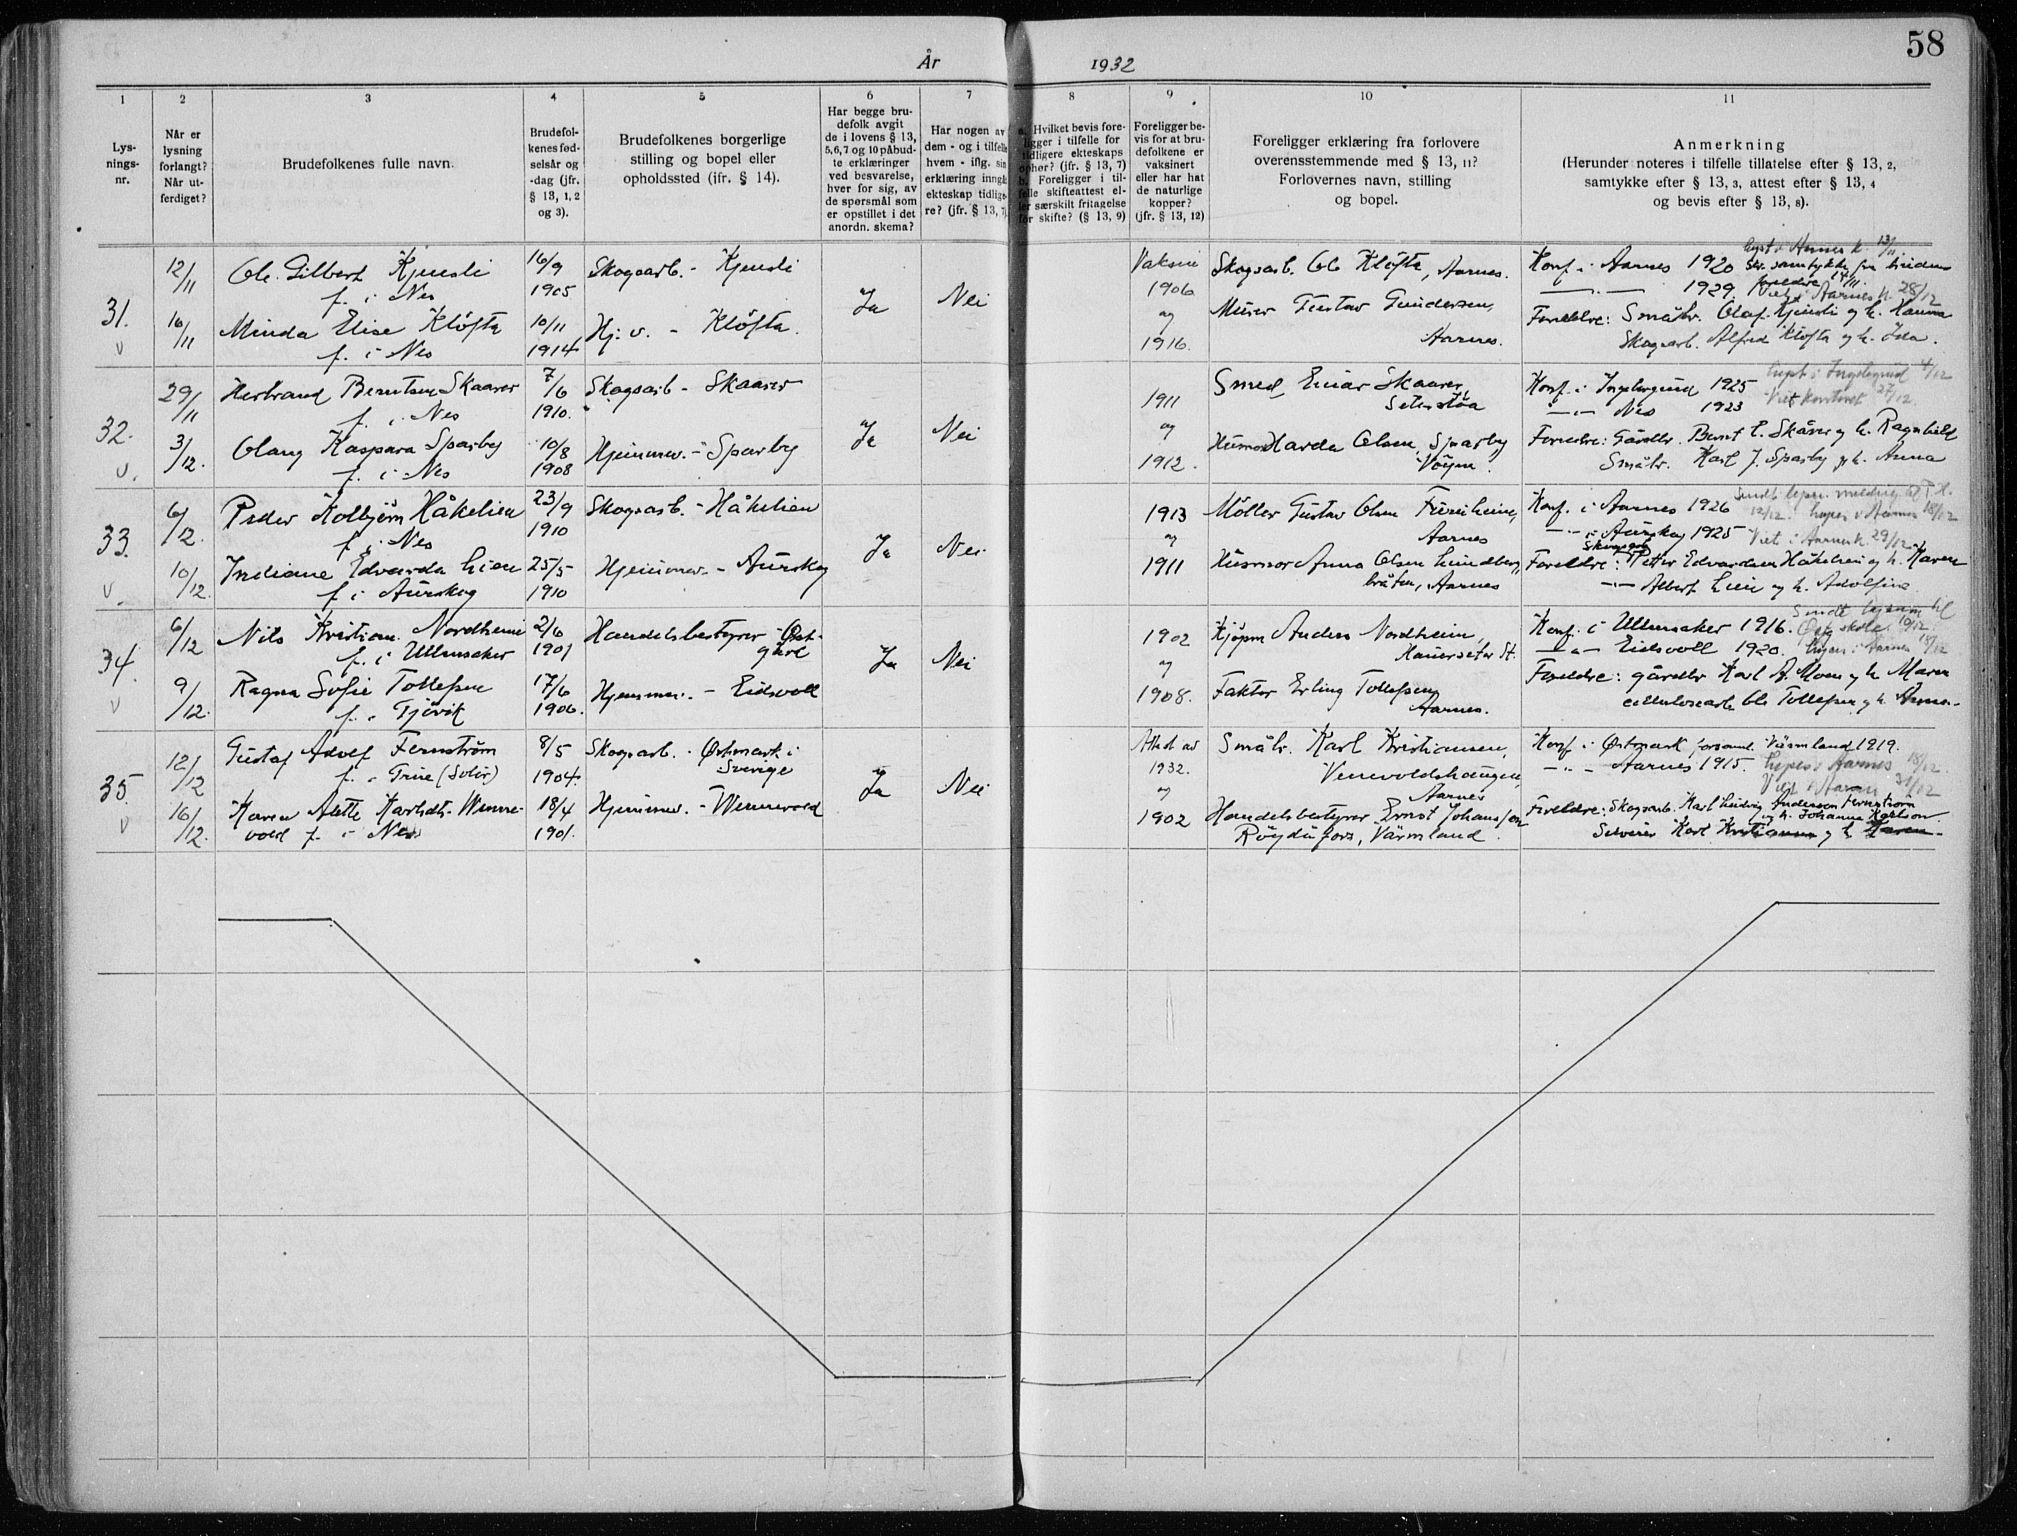 58
År 1932
1 2 3 4 5 6 7 8 9 10 11
Lys-
nings-
nr.
Når er
lysning
forlangt?
Når ut-
ferdiget?
Brudefolkenes fulle navn.
Brudefol-
kenes fød-
selsår og
-dag (jfr.
§ 13, 1, 2
og 3).
Brudefolkenes borgerlige
stilling og bopel eller
opholdssted (ifr. § 14).
Har begge bru-
defolk avgit
de i lovens § 13,
5, 6, 7 og 10 påbud-
te erklæringer
ved besvarelse,
hver for sig, av
de spørsmål som
er opstillet i det
anordn. skema?
Har nogen av
dem - og i tilfelle
hvem - iflg. sin
erklæring inngå
ekteskap tidlige-
re? (jfr. § 13, 7)
a. Hvilket bevis fore-
ligger i tilfelle for
tidligere ekteskaps
ophør? (jfr. § 13, 7)
b. Foreligger i til-
felle skifteattest el-
ler særskilt fritagelse
for skifte? (§ 13, 9)
Foreligger be-
vis for at bru-
defolkene er
vaksinert
eller har hat
de naturlige
kopper?
(jfr. § 13, 12)
Foreligger erklæring fra forlovere
overensstemmende med § 13, 11?
Forlovernes navn, stilling
og bopel.
Anmerkning
(Herunder noteres i tilfelle tillatelse efter § 13, 2,
samtykke efter § 13, 3, attest efter § 13, 4
og bevis efter § 13, 8).
31.
12/11
16/11
Ole Gilbert Kjensli
f. i Nes
Minda Elise Kløfta
f. i Nes
16/9
1905
10/11
1914
Skogsarb. - Kjensli
Hj. v. - Kløfta.
Ja
Nei
Vaksine
1906
og
1916.
Skogsarb. Ole Kløfta, Aarnes.
Murer Gustav Gundersen,
Aarnes.
lyst i Aarnes k. 13/11
Konf. i Aarnes 1920 Skr. samtykke fra brudens
foreldre 14/11.
1929. Viet i Aarnes k. 28/12
Foreldre: Småbr. Olaf Kjensli og h. Hanna
Skogsarb. Alfred Kløfta og h. Ida.
32.
29/11
3/12.
Herbrand Berntsen Skaarer
f. i Nes
Olaug Kaspara Sparby
f. i Nes
7/6
1910.
10/8
1908
Skogsarb - Skaarer
Hjemmev. - Sparby
Ja
Nei
1911
og
1912.
Smed Einar Skaarer,
Seterstøa
Harda Olsen, Sparby,
Konf. i Ingelsrud 1925 lyst i Ingelsrud 4/12
Nes 1923 Viet kontoret 27/12.
Foreldre: Gårdbr. Bernt E. Skårer og h. Ragnhild
Småbr. Karl J. Sparby og h. Anna
33.
6/12
10/12.
Peder Kolbjørn Håkelien
f. i Nes
Indiane Edvarda Lien
f. i Aurskog
23/9
1910
25/5
1910
Skogsarb. - Håkelien
Hjemmev. - Aurskog
Ja
Nei
1913
og
1911
Møller Gustav Olsen
Aarnes
Husmor Anna Olsen Lundberg-
bråten, Aarnes
Konf. i Aarnes 1926
i Aurskog 1925 Viet i Aarnes k. 29/12
Skogsarb.
Foreldre: Petter Edvardsen Håkelien og h. Karen
Albert Lien og h. Adolfine
34.
6/12
9/12.
Nils Kristian Nordheim
f. i Ullensaker
Ragna Sofie Tollefsen
f. i Gjøvik
2/6
1901
17/6
1906.
Handelsbestyrer - Øst-
gård
Hjemmev. - Eidsvoll
Ja
Nei
1902
og
1908.
Kjøpm Anders Nordheim,
Hauerseter St.
Faktor Erling Tollefsen,
Aarnes.
Konf. i Ullensaker 1916.
Eidsvoll 1920. lyses i Aarnes 18/12
Foreldre: gårdbr Karl A. Moen og h. Maren
cellulosearb Ole Tollefsen og h. Anna.
35.
12/12
16/12.
Gustaf Adolf Fernstrøm
f. i Grue (Solør)
Karen Alette Karlsdt. Wenne-
vold f. i Nes
8/5
1904.
18/4
1901.
Skogsarb. - Østmark i
Sverige
Hjemmev. - Wennevold
Ja
Nei
Attest av
1932.
og
1902
Småbr. Karl Kristiansen,
Vennevoldshaugen,
Aarnes
Handelsbestyrer Ernst Johansson
Röjdåfors, Värmland.
Konf. i Østmark forsaml. Värmland 1919.
Aarnes 1915. lyses i Aarnes 18/12
Viet i Aarnes 31/12
Foreldre: Skogsarb. Karl Ludvig Andersson Fernstrøm
og h. Johanna Karlson
Karl Kristiansen og h. Karen.